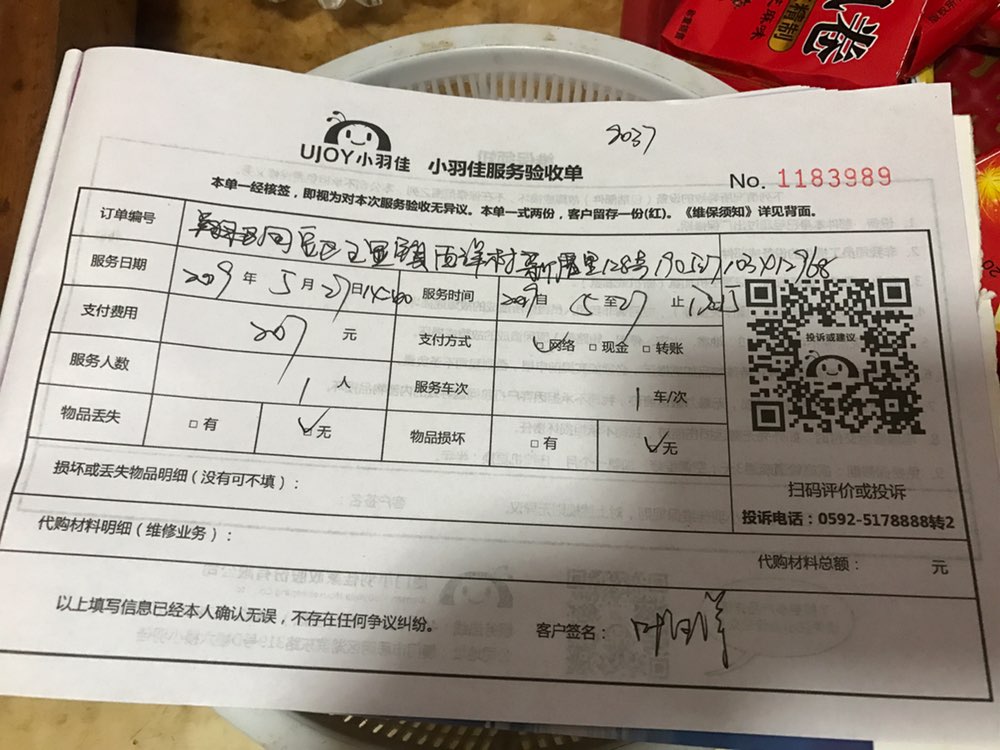 9037
UJOY小羽佳 小羽佳服务验收单
No. 1183989
本单一经核签，即视为对本次服务验收无异议。本单一式两份，客户留存一份(红)。《维保须知》详见背面。
订单编号
128号
服务日期 2019 年 5 月 27 日 服务时间 自 5 至 27 止
支付费用 207 元 支付方式 网络 □现金 □转账
服务人数 1 人 服务车次 1 车/次
物品丢失 □有 ☑无 物品损坏 □有 ☑无
投诉或建议
扫码评价或投诉
投诉电话：0592-5178888转2
损坏或丢失物品明细（没有可不填）：
代购材料明细（维修业务）：
代购材料总额： 元
以上填写信息已经本人确认无误，不存在任何争议纠纷。
客户签名：